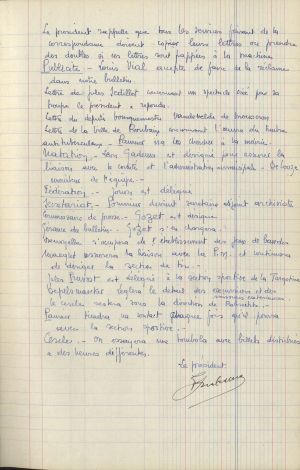 Le président rappelle que tous les services faisant de la
correspondance doivent copier leurs lettres ou prendre
des doubles si ces lettres sont tappées à la machine
Publicité - Louis Vial accepte de faire de la réclame
dans notre bulletin.
Lettre de Jules Sedillot concernant un spectacle créé par sa
troupe le président a répondu.
Lettre du député bourguemestre
Lettre de la ville de Roubaix concernant l'œuvre du timbre
antituberculeux - ira les chercher à la mairie.
Natation - Léon est désigné pour assurer la
liaison avec le comité et l'administration municipale.
moniteur de l'équipe -
Fédération - est délégué
Secrétariat - devient secrétaire adjoint archiviste
Commissaire de presse - Gozet est désigné
Gérance du bulletin - Gozet s'en chargera.
s'occupera de l'établissement des jeux de
assurera la liaison avec la P.M. et continuera
de diriger la section de tir. -
Jules est délégué à la section sportive de la
réglera le détail des excursions et des
le cercle restera sous la direction de
tiendra un contact chaque fois qu'il pourra
avec la section sportive. -
Cercles - On essayera une tombola avec billets distribués
à des heures différentes.
Le président